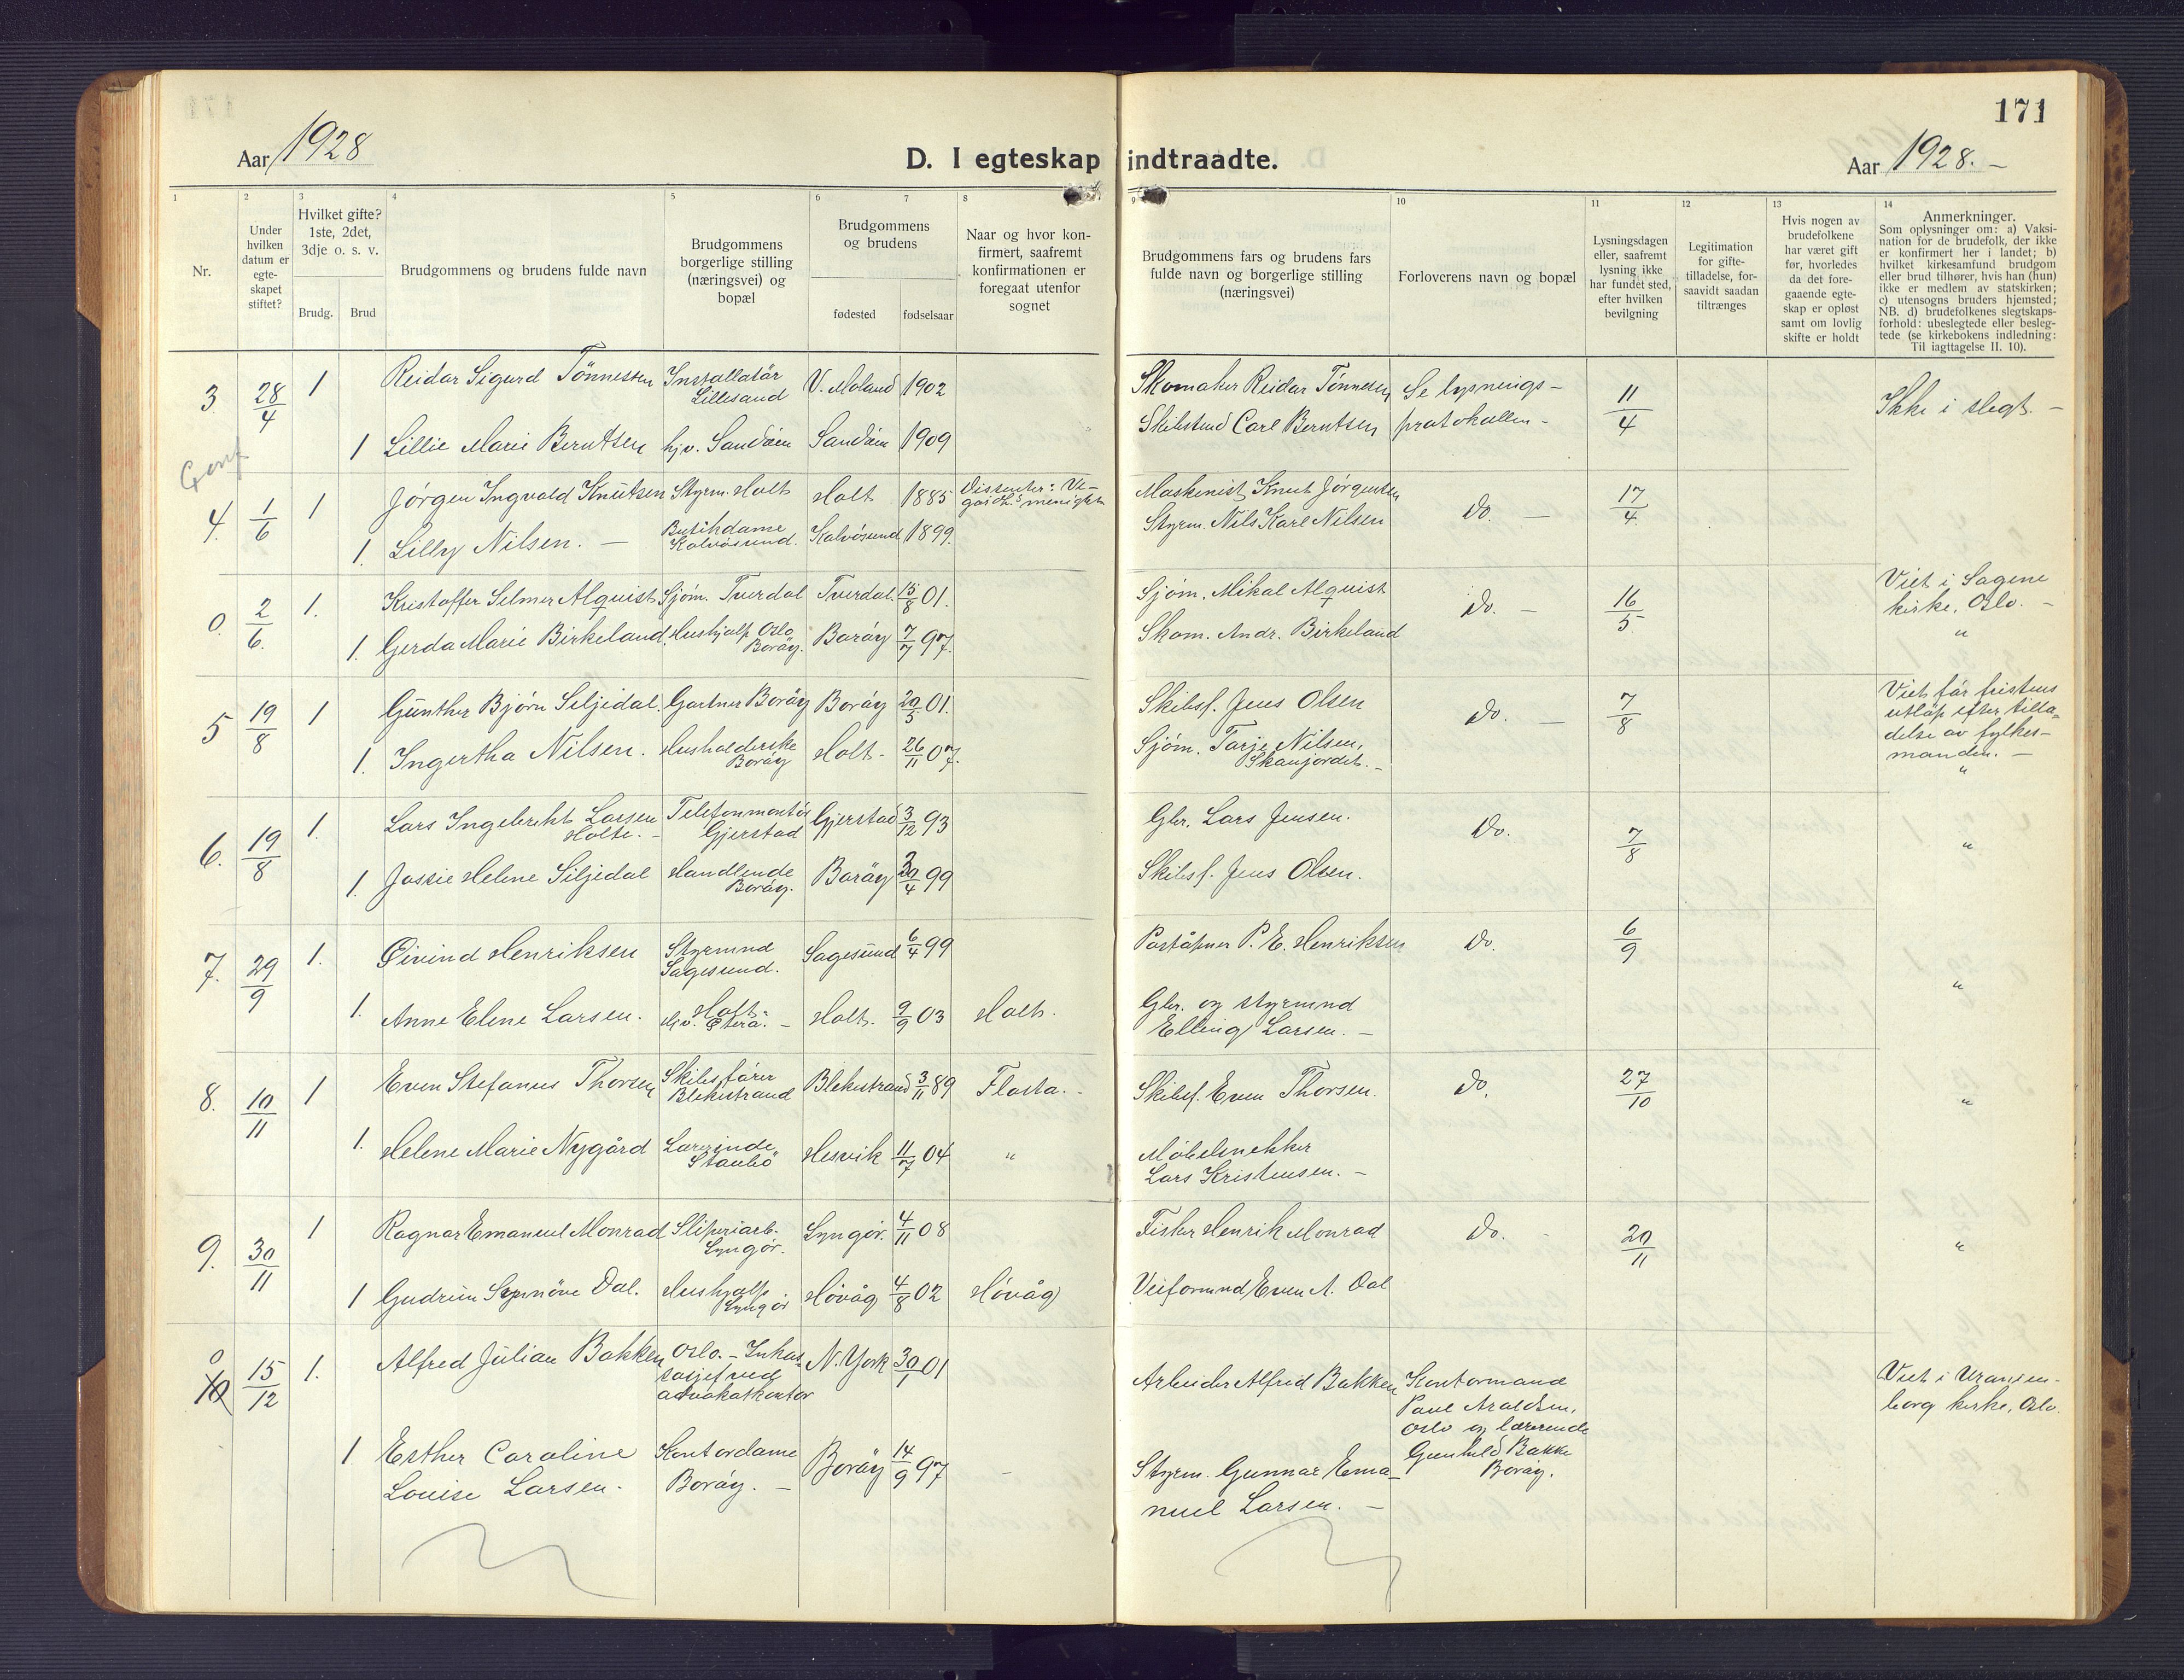 171
Aar 1928
D. I egteskap indtraadte.
Aar 1928. –
1
2
3
4
5
6
7
8
9
10
11
12
13
14
Nr.
Under
hvilken
datum er
egte-
skapet
stiftet?
Hvilket gifte?
1ste, 2det,
3dje o. s. v.
Brudg.
Brud
Brudgommens og brudens fulde navn
Brudgommens
borgerlige stilling
(næringsvei) og
bopæl
Brudgommens
og brudens
fødested
fødselsaar
Naar og hvor kon-
firmert, saafremt
konfirmationen er
foregaat utenfor
sognet
Brudgommens fars og brudens fars
fulde navn og borgerlige stilling
(næringsvei)
Forloverens navn og bopæl
Lysningsdagen
eller, saafremt
lysning ikke
har fundet sted,
efter hvilken
bevilgning
Legitimation
for gifte-
tilladelse, for-
saavidt saadan
tiltrænges
Hvis nogen av
brudefolkene
har været gift
før, hvorledes
da det fore-
gaaende egte-
skap er opløst
samt om lovlig
skifte er holdt
Anmerkninger.
Som oplysninger om: a) Vaksi-
nation for de brudefolk, der ikke
er konfirmert her i landet; b)
hvilket kirkesamfund brudgom
eller brud tilhører, hvis han (hun)
ikke er medlem av statskirken;
c) utensogns bruders hjemsted;
NB. d) brudefolkenes slegtskaps-
forhold: ubeslegtede eller besleg-
tede (se kirkebokens indledning:
Til iagttagelse II. 10).
3 28/4 1 Reidar Sigurd Tönnessen Installatör V. Moland 1902 Skomaker Reidar Tönnesen Se lysnings- 11/4 Ikke i slegt. –
Lillesand
1 Lillie Marie Berntsen hjv. Sandöen Sandöen 1909 Skibstmd Carl Berntsen protokollen –
4. 1/6 1 Jörgen Ingvald Knutsen Styrm. Holt Holt 1885 Maskinist Knut Jörgensen Do. – 17/4
1. Lilly Nilsen. – Butikdame Kalvösund 1899. Styrm. Nils Karl Nilsen
Kalvösund.
0. 2/6. 1. Kristoffer Selmer Alquist Sjöm. Tverdal Tverdal. 15/8 01. Sjöm. Mikal Alquist Do. – 16/5 Viet i Sagene
kirke, Oslo. –
1. Gerda Marie Birkeland. Hushjalp Oslo Boröy 7/7 97. Skom. Andr. Birkeland "
Boröy.
5 19/8 1 Günther Björn Siljedal. Gartner Boröy Boröy 20/5 01. Skibsf. Jens Olsen Do. – 7/8 Viet för fristens
utlöp efter tilla-
delse av fylkes-
manden. –
1. Ingertha Nilsen. Husholderske Holt. 26/11 07. Sjöm. Tarje Nilsen, "
Boröy Skaujordet. –
6. 19/8 1. Lars Ingebrekt Larsen Telefonmontör Gjerstad 3/12 93 Gbr. Lars Jensen. Do. 7/8 "
Holte. – Gjerstad
1. Jossie Helene Siljedal Handlende Boröy 30/4 99 Skibsf. Jens Olsen.
Boröy.
7. 29/9 1. Öivind Henriksen Styrmnd Sagesund 6/4 99 Poståpner P. E. Henriksen Do. 6/9 "
Sagesund.
1. Anne Elene Larsen. Holt. 9/9 03 Holt. Gbr. og styrmnd
Elling Larsen. –
8. 10/11 1 Even Stefanus Thorsen Skibsförer Blekestrand 3/11 89 Flosta. – Skibsf. Even Thorsen. Do. 27/10 "
Blekestrand
1. Helene Marie Nygård Lærerinde Hesvik 11/7 04 " Möbelsnekker
Staubö Lars Kristensen. –
9. 30/11 1 Ragnar Emanuel Monrad Sliperiarb. Lyngör. 4/11 08 Fisker Henrik Monrad Do. – 20/11 "
Lyngör.
1 Gudrun Synnöve Dal. Hushjalp. Hövåg 4/8 02 Hövåg Veiformnd Even A. Dal
Lyngör
0 10 15/12 1. Alfred Julian Bakken Oslo. – Inkas- N. York 30/1 01 Arbeider Alfred Bakken Kontormand Viet i Uranien-
sosjef ved Paul Araldsen, borg kirke, Oslo.
advokatkontor Oslo og lærerinde
1 Esther Caroline Kontordame Boröy 14/9 97 – Styrm. Gunnar Ema- Gunhild Bakke
Louise Larsen. Boröy. – nuel Larsen. – Boröy.